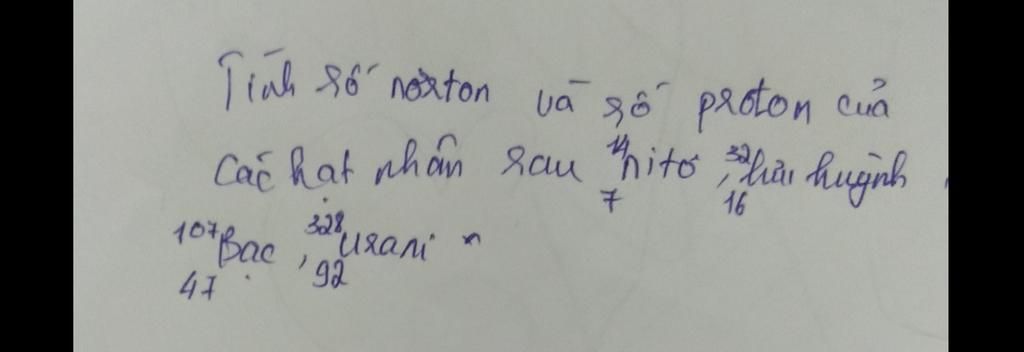 Tính số nơrton và số proton của
các hạt nhân sau ¹⁴₇nitơ, ³²₁₆lưu huỳnh,
¹⁰⁷₄₇Bạc, ³²⁸₉₂Urani